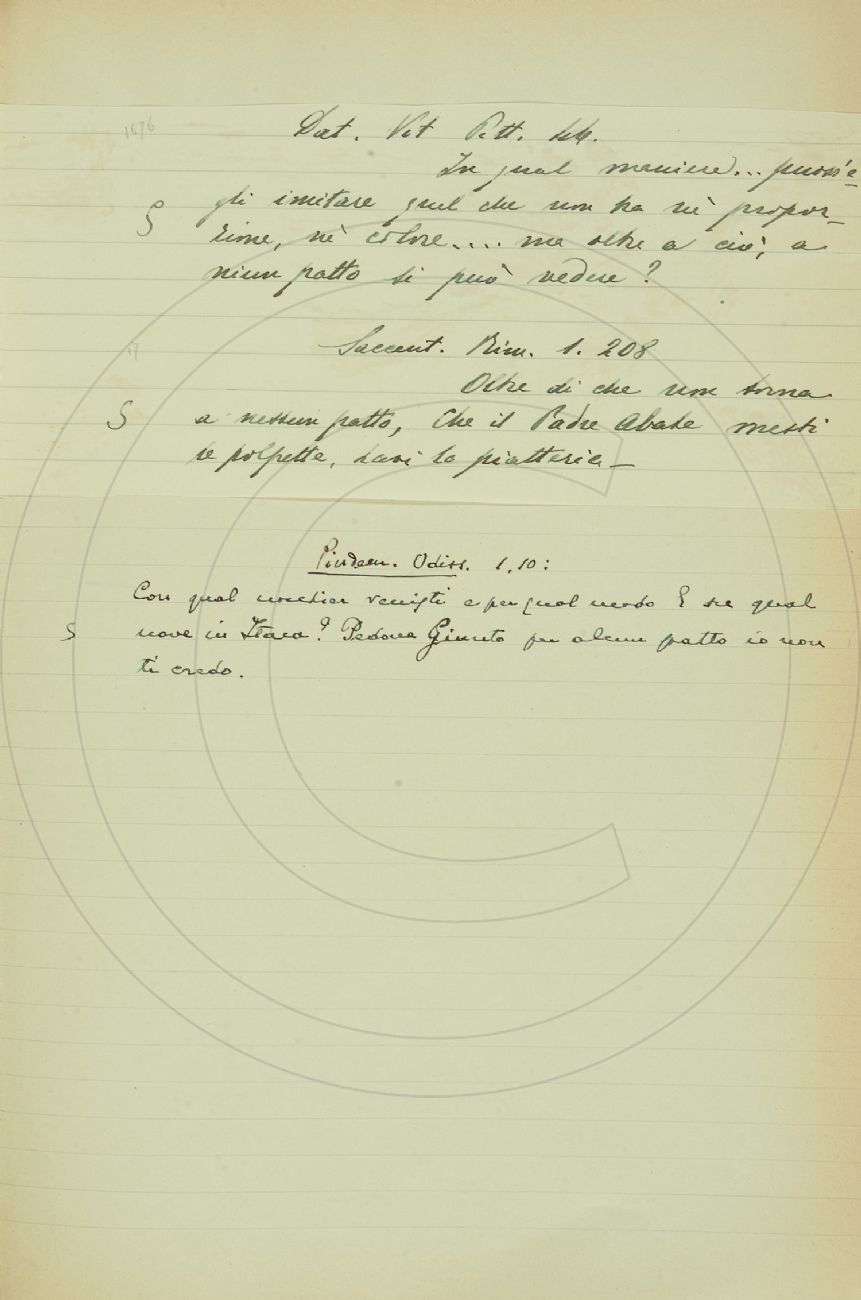 1676
Dat. Vit Pitt.
In qual maniera... puoss'e-
gli imitare quel che non ha nè propor-
zione, nè colore.... ma oltre a ciò, a
niun patto si può vedere?
Saccent. Rim. 1. 208
Oltre di che non torna
a nessun patto, Che il Padre Abate mesti
le polpette, lavi la piatteria —
Pindem. Odiss. 1,10:
Con qual nocchier venisti e per qual modo E su qual
nave in Itaca? Pedone Giunto per alcun patto io non
ti credo.